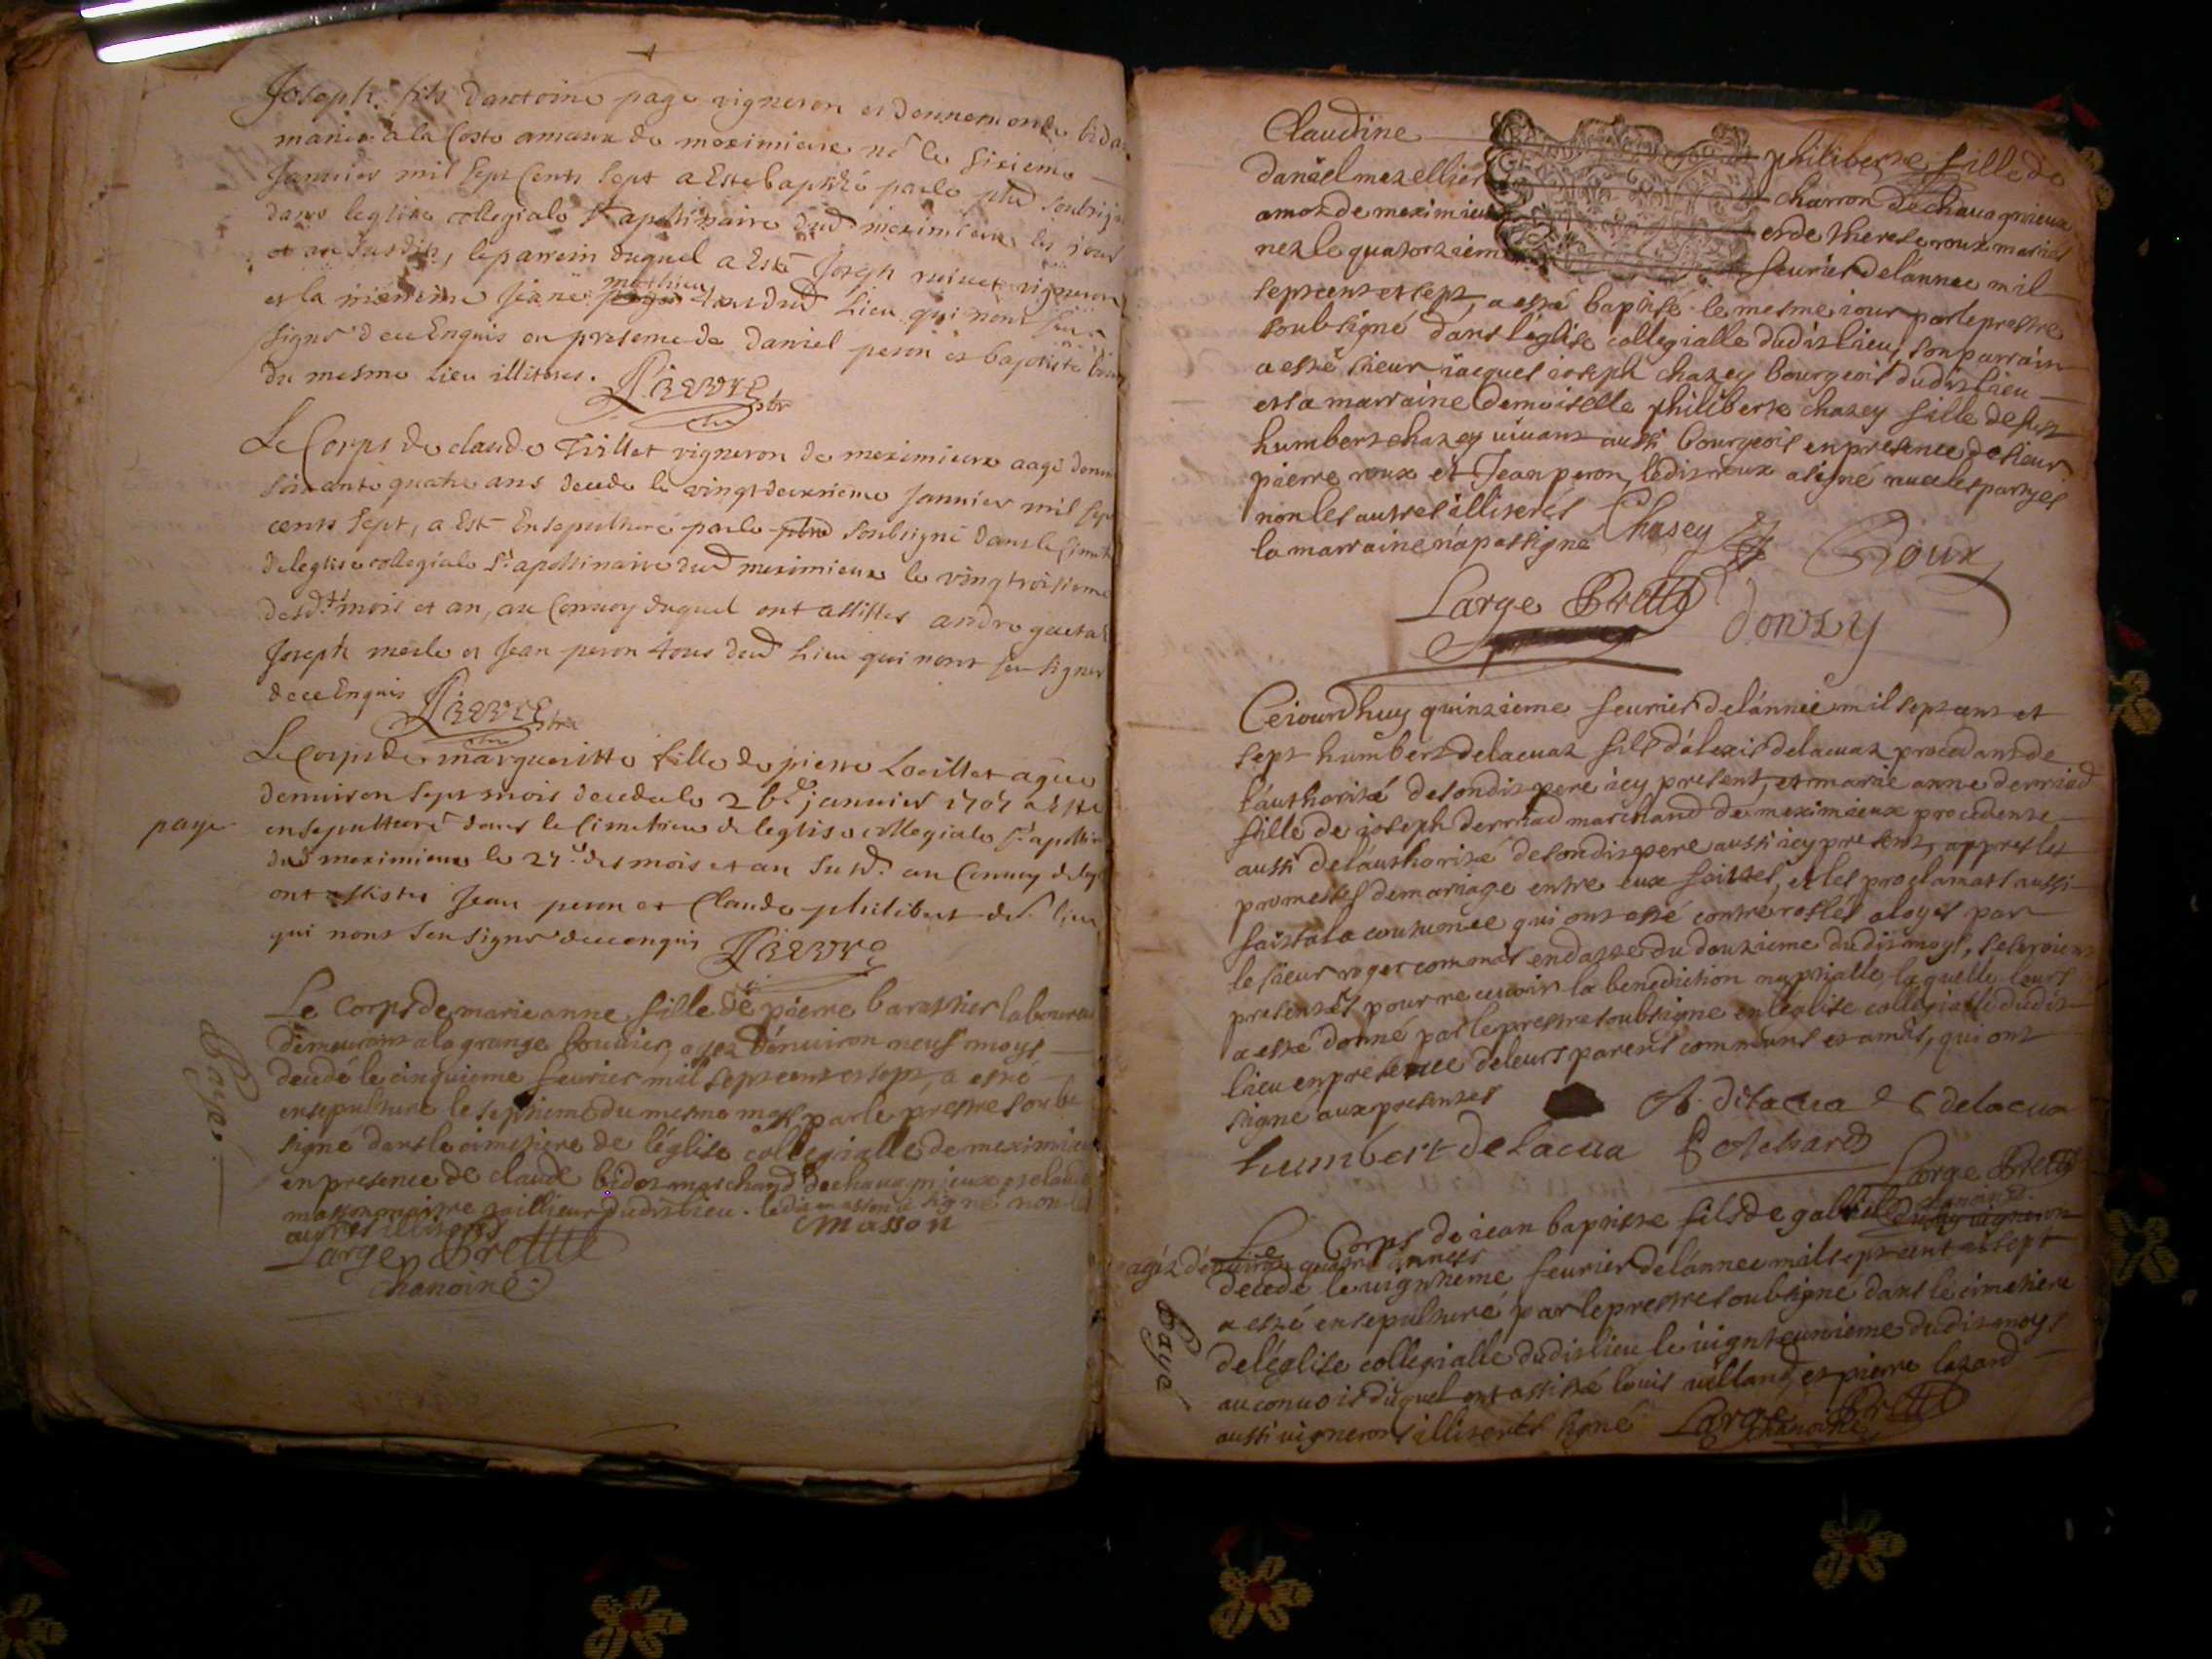 Joseph fils dantoine page vigneron et dennemonde
mariés à la Coste amaux de meximieux né le sixieme
Janvier mil sept Cents sept a Esté baptizé par le pbre soubsigné
dans leglise collegiale St apollinaire dud meximieux les jour
et an susdits, le parrein duquel a Esté Joseph vigneron
et la marreine Jeane mathieu tous dud Lieu qui nont sçu
signé de ce Enquis en presence de daniel peron et baptiste
du mesme lieu illiteres.
Le Corps de claude Trillet vigneron de meximieux aagé denviron
soixante quatre ans decede le vingtdeuxieme Janvier mil sept
cents sept, a Esté Ensepulturé par le pbre soubsigné dans le
de leglise collegiale St apollinaire dud meximieux le vingtroisieme
desd.ts mois et an, au Convoy duquel ont assistes andre
Joseph merle et Jean peron tous dud Lieu qui nont sçu signer
de ce Enquis
Le Corps de margueritte fille de pierre Loeillet agée
denviron sept mois decedee le 26e janvier 1707 a esté
paye
ensepulturé dans le Cimetiere de leglise collegiale St
dud meximieux le 27e des mois et an susd. au Convoy
ont assistes Jean peron et Claude philibert dud lieu
qui nont sçu signé de ce enquis
Le Corps de marie anne fille de pierre barattier laboureur
demeurant a la grange bouvier, agez d'enuiron neuf moys
decedé le cinquieme feurier mil sept cent et sept, a esté
Payé.
ensepulturé le septieme du mesme moys, par le prestre soub
signé dans le cimetiere de l'église collegialle de meximieux
en presence de claude bidot marchand de chauagnieux et claude
masson maistre taillieur dudit lieu. ledit masson a signé non les
autres illiterés
masson
Large Brettt
chanoine.
Claudine philiberte fille de
danïel mezellier charron de chauagnieux
amos de meximieux et de therese roux mariés
nez le quatorzieme feurier de l'annee mil
sept cent et sept, a esté baptisé le mesme iour par le prestre
soubsigné dans l'eglise collegialle dudit lieu, son parrain
a esté sieur iacques ioseph chazey bourgeois dudit lieu
et sa marraine demoiselle philiberte chazey fille de feu
humbert chazey uiuant aussi bourgeois en presence de sieur
pierre roux et Jean peron, ledit roux a signé auec les partyes
non les autres illiterés
la marraine n'a pas signé Chasey Roux
Large Brettt donsy
Ceiourdhuy quinzieme feurier de l'année mil sept cent et
sept humbert delacuaz fils d'alexis delacuaz procedant de
l'authorité de sondit pere icy present, et marie anne derriad
fille de ioseph derriad marchand de meximieux procedente
aussi de l'authorité de sondit pere aussi icy present, apprès les
promesses de mariage entre eux faittes, et les proclamats aussi
fait a la coutumée qui ont esté contrerolles aloyés par
le sieur roger commis en datte du douzieme dudit moys, se seroient
presentés pour receuoir la benediction nuptialle, laquelle leurs
a esté donné par le prestre soubsigné en l'eglise collegialle dudit
lieu en presence de leurs parens communs et amis, qui ont
signé aux presentes A. delacua C delacua
humbert delacua P Achard
Large Brettt
chanoine.
Le Corps de iean baptiste fils de gabriel vigneron
agéz d'enuiron quatre annees
decedé le uigntieme feurier de l'annee mil sept cent et sept
Payé
a esté ensepulturé par le prestre soubsigné dans le cimetiere
de l'église collegialle dudit lieu le uignteunieme dudit moys
au conuoi duquel ont assisté louis uilland, et pierre lozard
aussi uignerons illiterés signé Large Brettt
chanoine